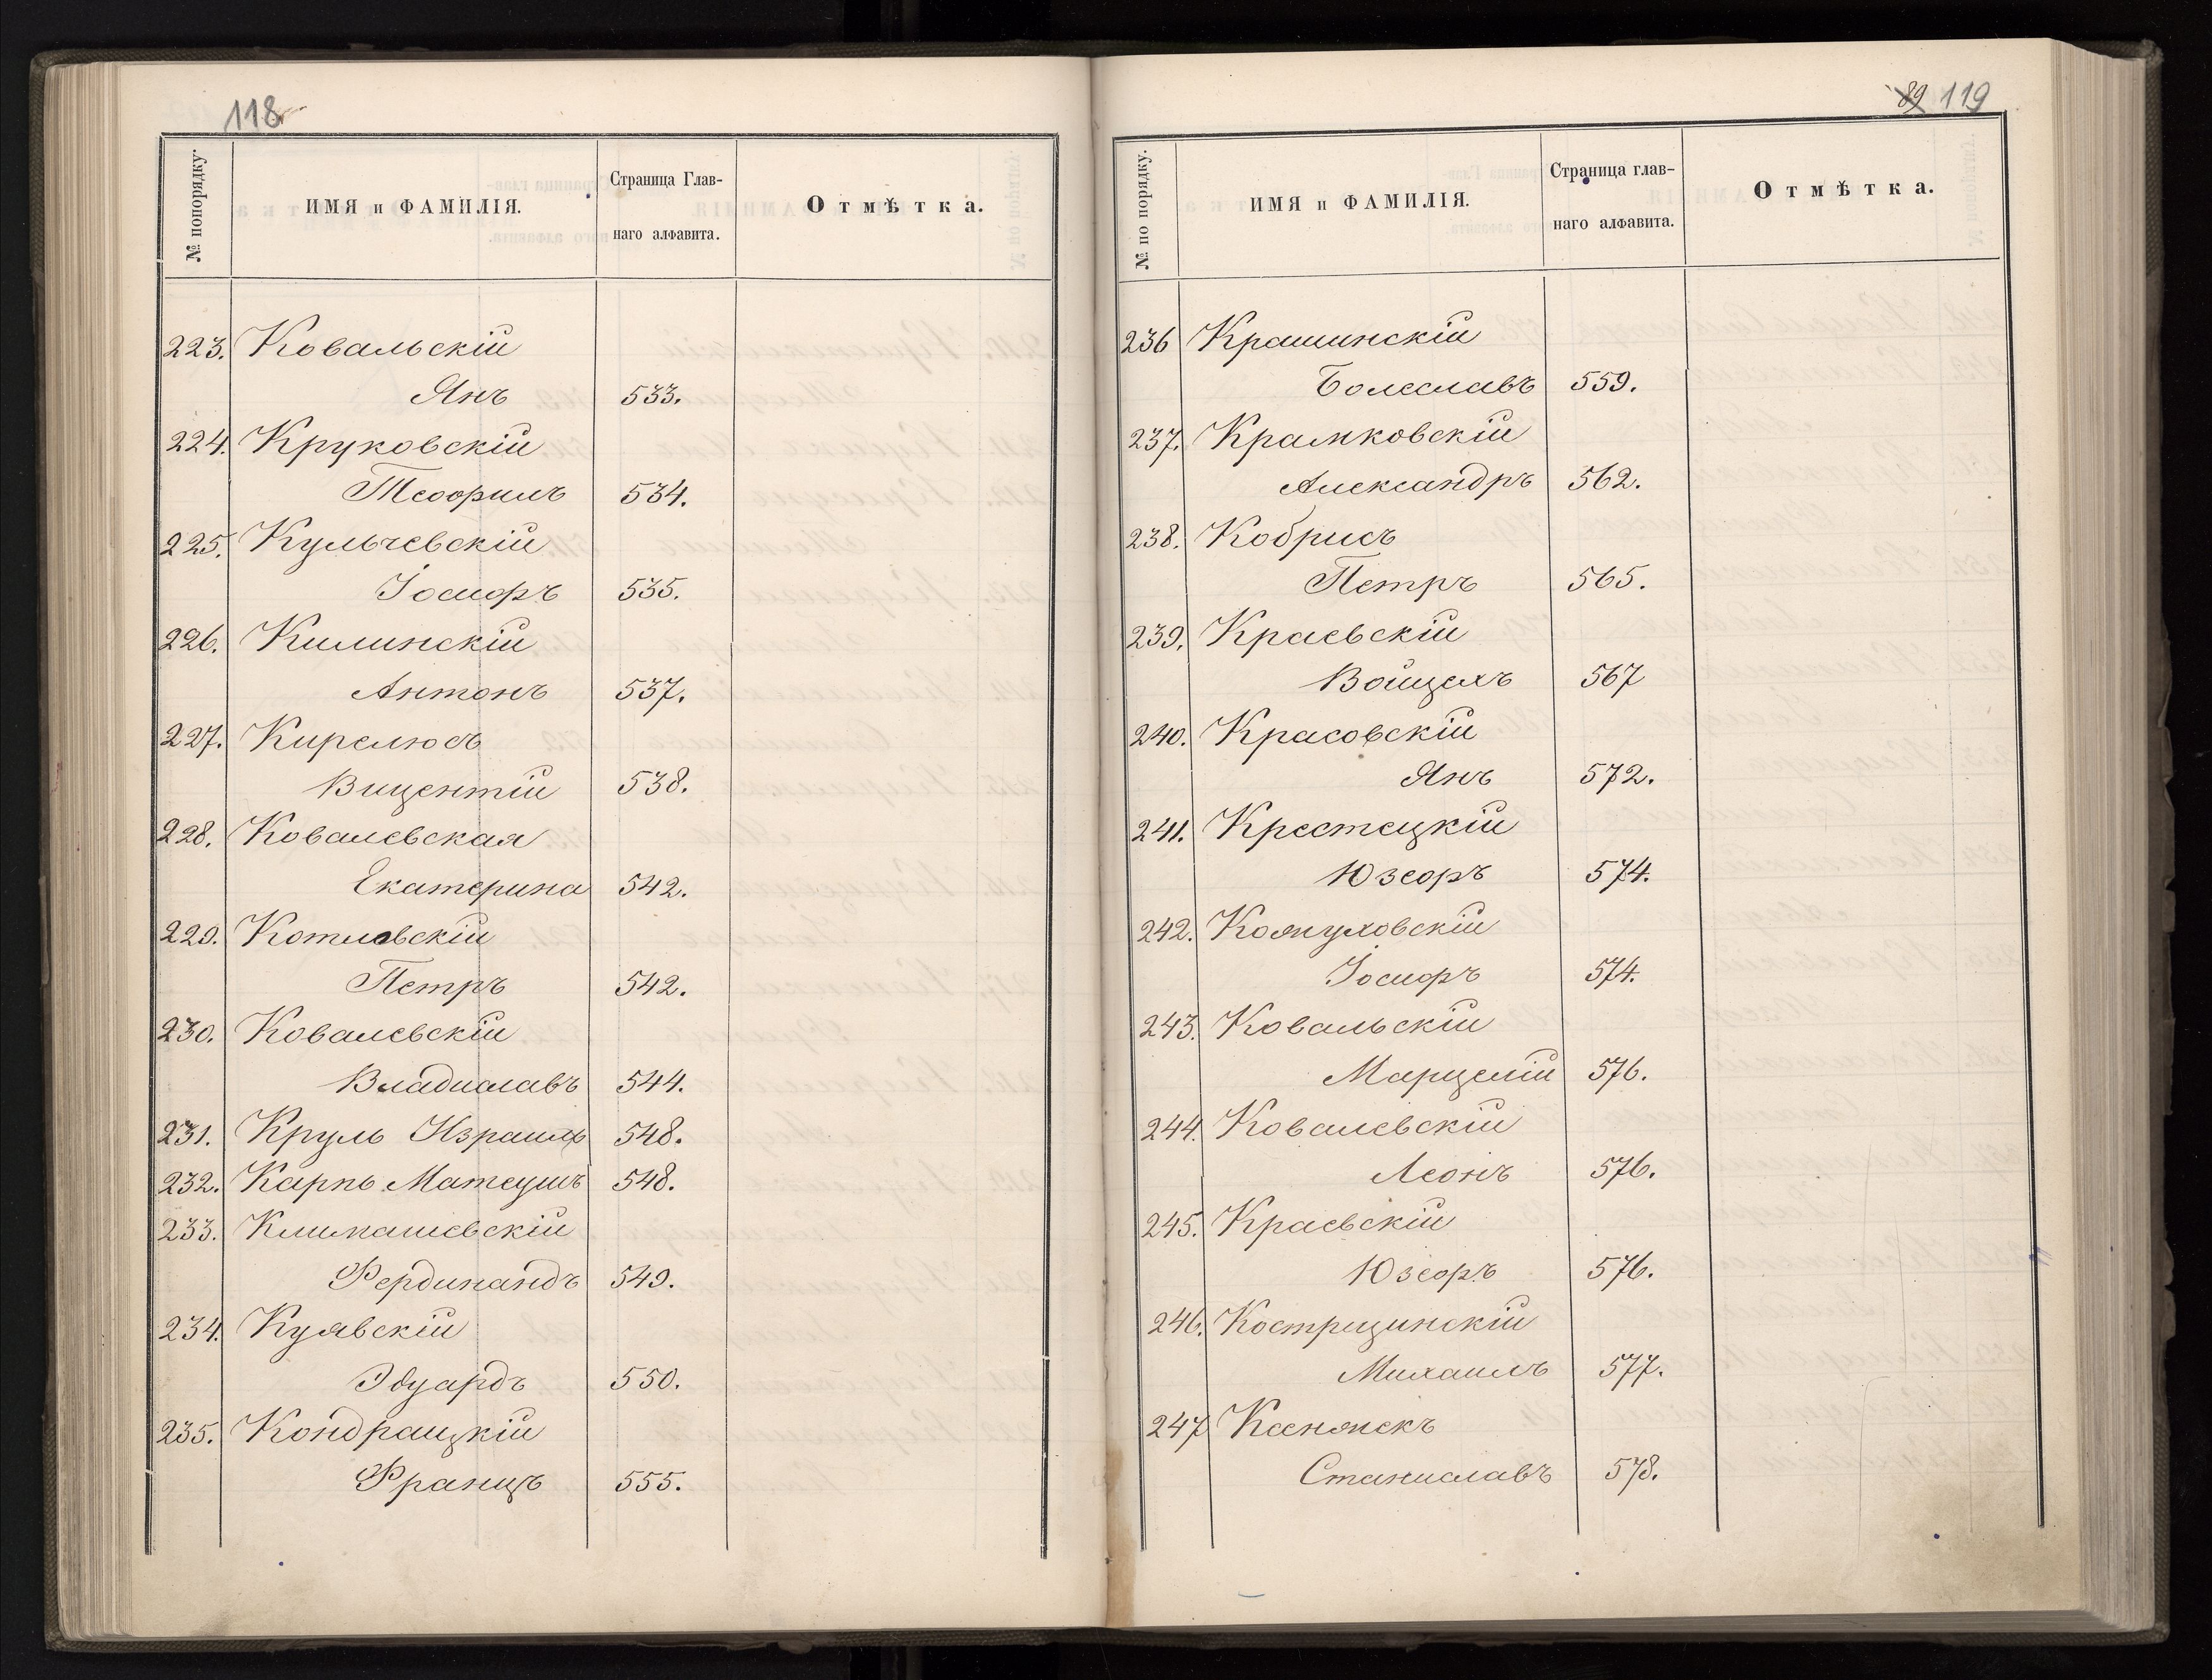 118
№ попорядку.
ИМЯ и ФАМИЛІЯ.
Страница Глав-
наго алфавита.
Отмѣтка.
223. Ковальскій
Янъ 533.
224. Круковскій
Теофилъ 534.
225. Кульчевскій
Іосифъ 535.
226. Килинскій
Антонъ 537.
227. Кирелюсъ
Вицентій 538.
228. Ковалевская
Екатерина 542.
229. Котловскій
Петръ 542.
230. Ковалевскій
Владиславъ 544.
231. Круль Израиль 548.
232. Карпь Матеушъ 548.
233. Климашевскій
Фердинандъ 549.
234. Куявскій
Эдуардъ 550.
235. Кондрацкій
Францъ 555.
89 119
№ по порядку.
ИМЯ и ФАМИЛІЯ.
Страница глав-
наго алфавита.
Отмѣтка.
236 Крашинскій
Болеславъ 559.
237. Крамковскій
Александръ 562.
238. Кобрисъ
Петръ 565.
239. Краевскій
Войцехъ 567
240. Красовскій
Янъ 572.
241. Крестецкій
Юзефъ 574.
242. Кожуховскій
Іосифъ 574.
243. Ковальскій
Марцелій 576.
244. Ковалевскій
Леонъ 576.
245. Краевскій
Юзефъ 576.
246. Кострицинскій
Михаилъ 577.
247 Ксенжекъ
Станиславъ 578.